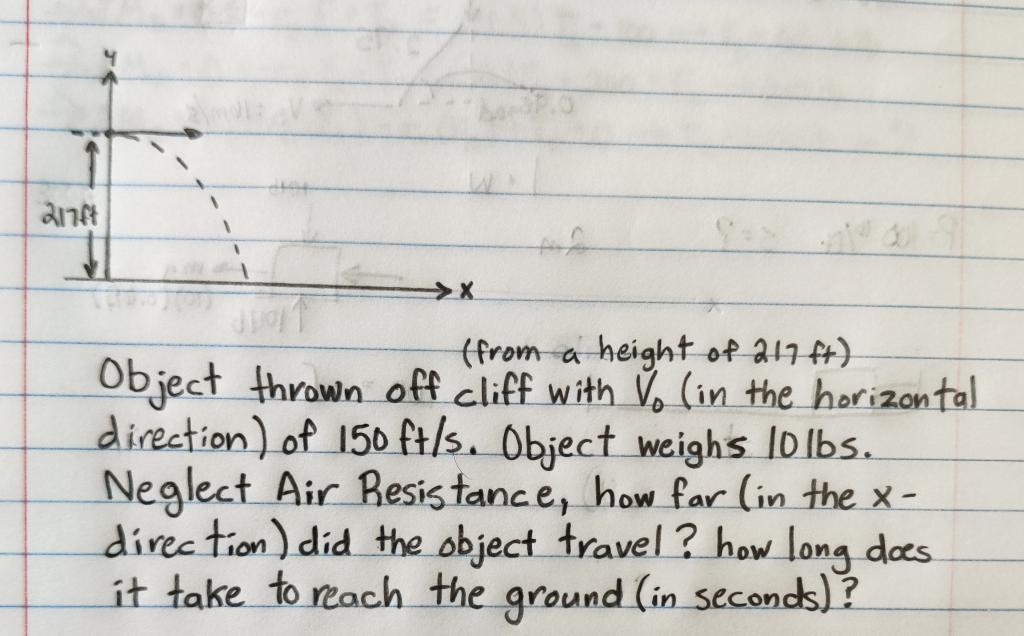 y
217ft
x
(from a height of 217 ft)
Object thrown off cliff with V₀ (in the horizontal
direction) of 150 ft/s. Object weighs 10 lbs.
Neglect Air Resistance, how far (in the x-
direction) did the object travel? how long does
it take to reach the ground (in seconds)?